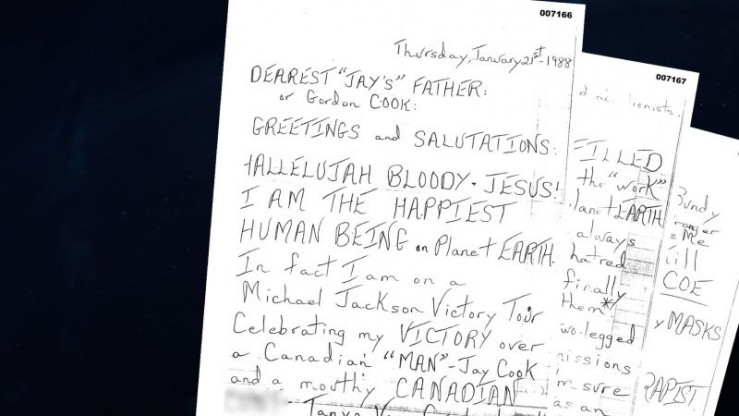 007166
Thursday, January 21st-1988
DEAREST "JAY'S" FATHER:
or Gordon COOK:
GREETINGS and SALUTATIONS:
HALLELUJAH BLOODY-JESUS!
I AM THE HAPPIEST
HUMAN BEING on Planet EARTH.
In fact I am on a
Michael Jackson Victory Tour
Celebrating my VICTORY over
a Canadian "MAN"-Jay Cook
and a mouthy CANADIAN
Tanya
007167
FILLED
the "work"
EARTH
always
hatred
finally
them*
two-legged
missions
I'm sure
as an
Bundy
Me
Kill
COE
MASKS
RAPIST